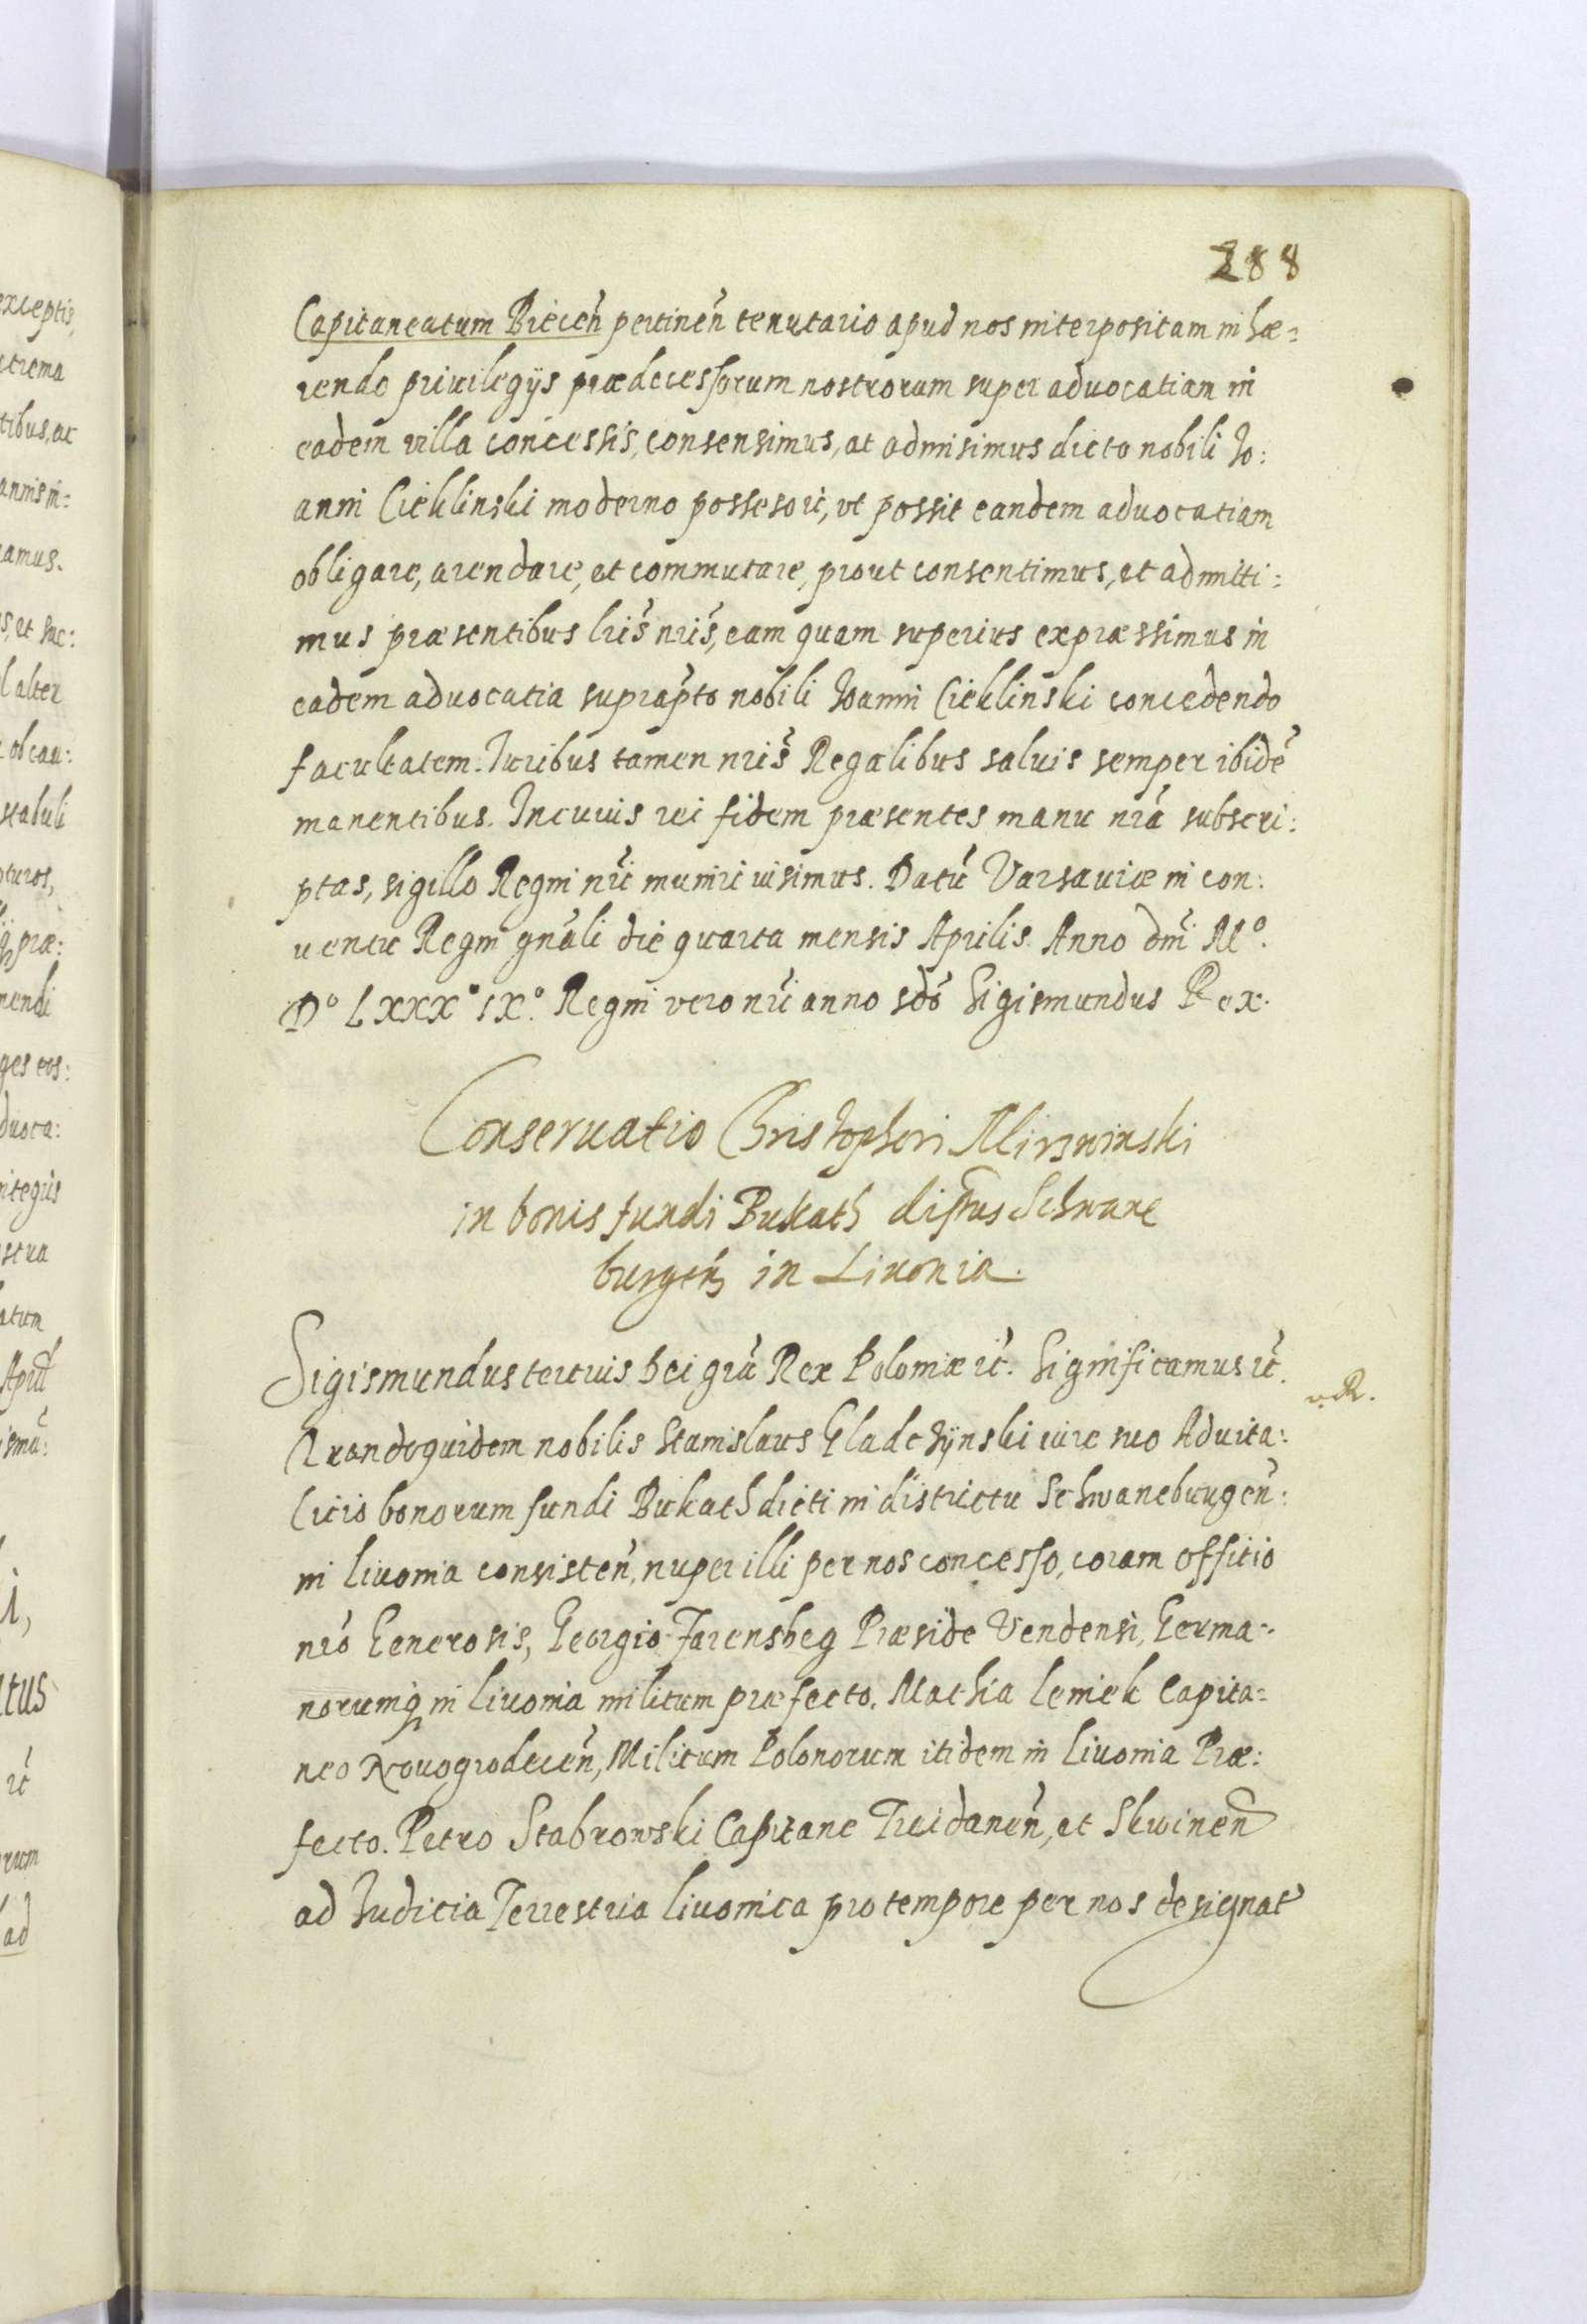 288
Capitaneatum Bieceñ pertineñ tenutario apud nos interpositam in hæ=
rendo priuilegijs prædecessorum nostrorum super aduocatiam in
eadem villa concessis, consensimus, at admisimus dicto nobili Jo:
anni Cieklinski moderno possesori, vt possit eandem aduocatiam
obligare, arendare, et commutare, prout consentimus, et admitti:
mus præsentibus lris nris, eam quam superius expræssimus in
eadem aduocatia suprapto nobili Joanni Cieklinski concedendo
facultatem. Juribus tamen nris Regalibus saluis semper ibidē
manentibus. In cuius rei fidem præsentes manu nrā subscri:
ptas, sigillo Regni nri muniri iusimus. Datū Varsauiæ in con:
uentu Regni gnāli die quarta mensis Aprilis. Anno dm̄i Mº.
Dº LXXXº IXº. Regni vero nri anno sdō Sigismundus Rex.
Conseruatio Christophori Mirzwinski
in bonis fundi Bukath distrus Schwane
burgeñ in Liuonia.
Sigismundus tertius Dei grā Rex Poloniæ etc. Significamus etc.
v. R.
Quandoquidem nobilis Stanislaus Gladchÿnski iure suo Aduita:
licio bonorum fundi Bukath dicti in districtu Schwaneburgeñ:
in Liuonia consisteñ, nuper illi per nos concesso, coram offitio
nrō Generosis, Georgio Farensbeg Præside Vendensi, Germa:
norumq in Liuonia militum præfecto. Mathia Leniek Capita=
neo Nouogrodeceñ, Militum Polonorum itidem in Liuonia Præ:
fecto. Petro Stabrowski Capitane Treidaneñ, et Skuineñ
ad Judicia Terrestria Liuonica pro tempore per nos designat